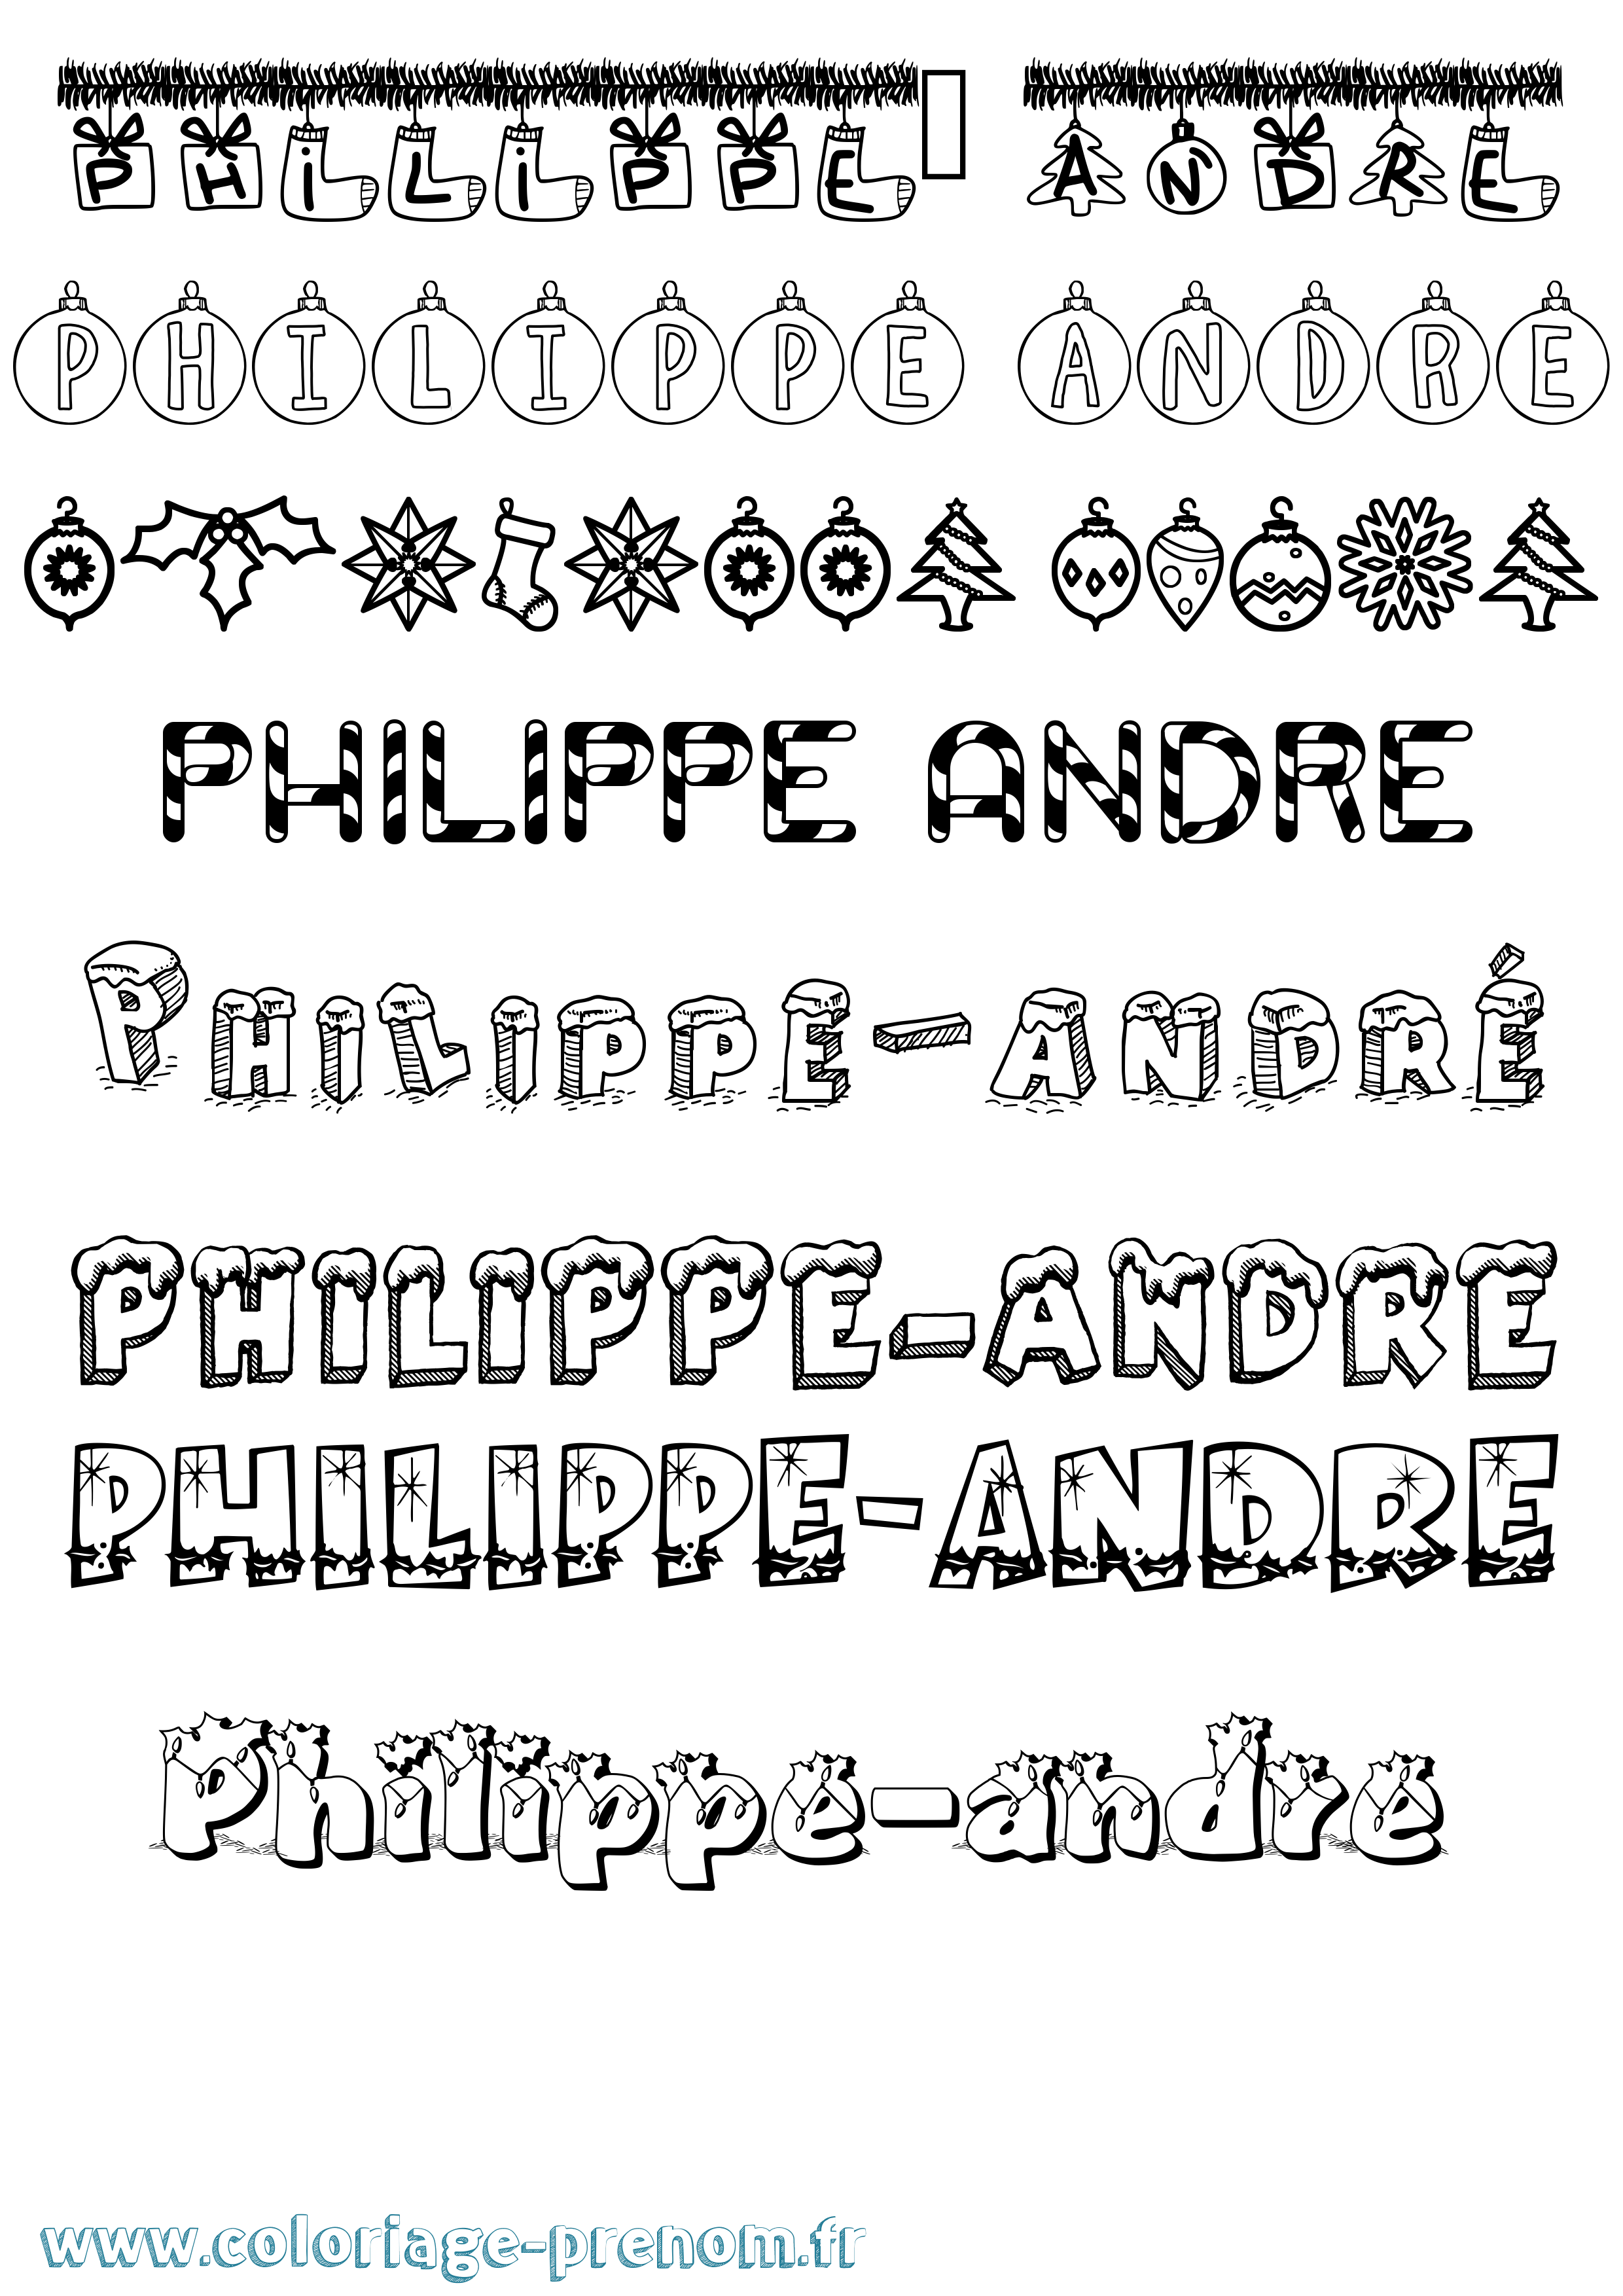 PHiLiPPE ANDRE
PHILIPPE ANDRE
PHILIPPE ANDRE
PHILIPPE-ANDRÉ
PHILIPPE-ANDRE
PHILIPPE-ANDRE
Philippe-andre
www.coloriage-prenom.fr